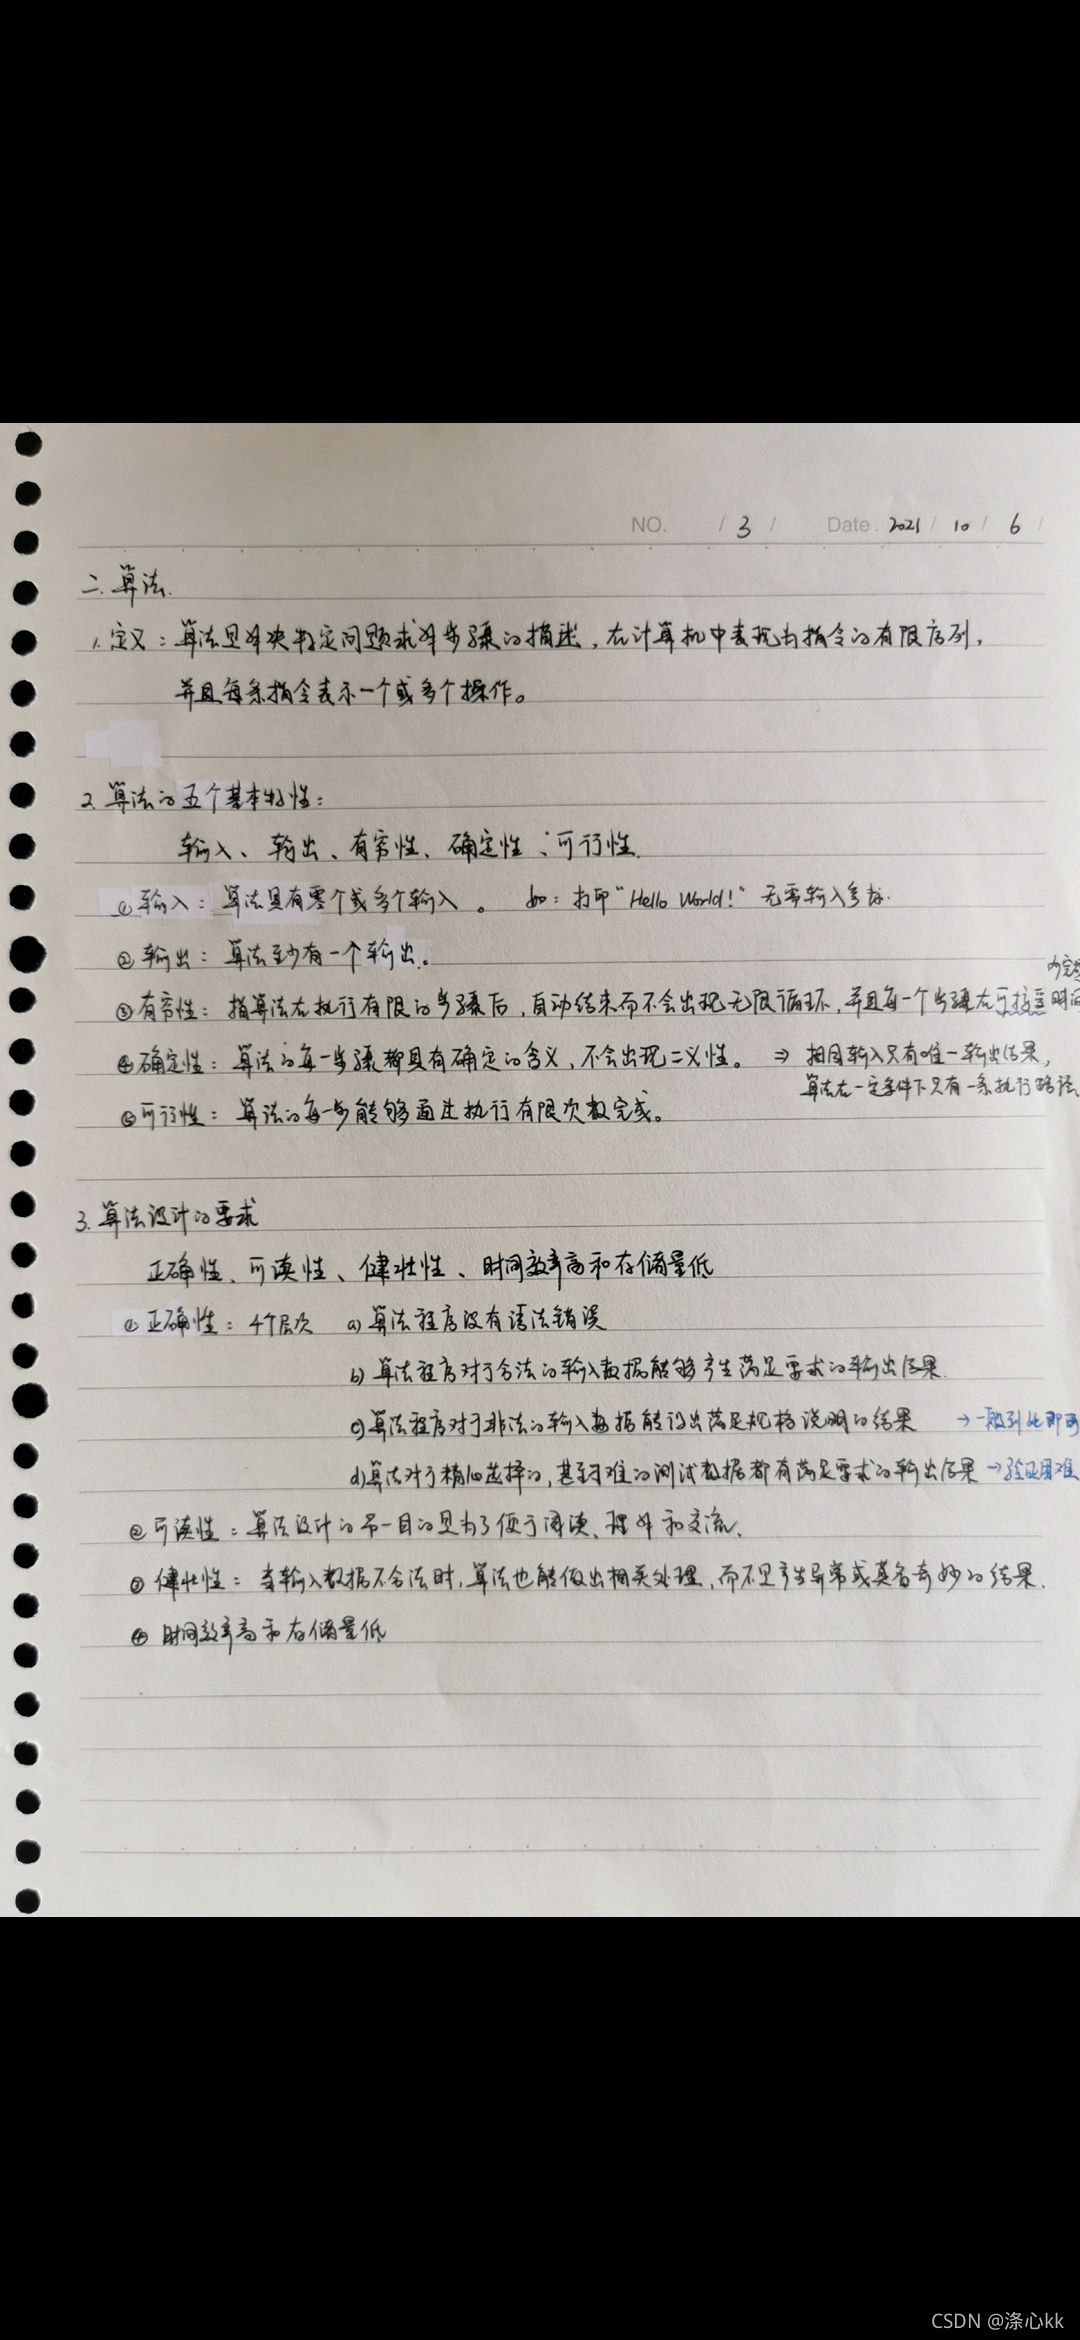 NO. / 3 / Date. 2021 / 10 / 6 /
二. 算法.
1. 定义：算法是解决特定问题求解步骤的描述，在计算机中表现为指令的有限序列，
并且每条指令表示一个或多个操作。
2. 算法的五个基本特性：
输入、输出、有穷性、确定性、可行性.
① 输入：算法具有零个或多个输入。 如：打印“Hello World!” 无需输入参数.
② 输出：算法至少有一个输出。
③ 有穷性：指算法在执行有限的步骤后，自动结束而不会出现无限循环，并且每一个步骤在可接受时间
内完成
④ 确定性：算法的每一步骤都具有确定的含义，不会出现二义性。 ⇒ 相同输入只有唯一输出结果，
算法在一定条件下只有一条执行路径
⑤ 可行性：算法的每一步能够通过执行有限次数完成。
3. 算法设计的要求
正确性、可读性、健壮性、时间效率高和存储量低
① 正确性：4个层次 a) 算法程序没有语法错误
b) 算法程序对于合法的输入数据能够产生满足要求的输出结果.
c) 算法程序对于非法的输入数据能得出满足规格说明的结果 → 一般到此即可
d) 算法对于精心选择的，甚至刁难的测试数据都有满足要求的输出结果 → 验证困难
② 可读性：算法设计的另一目的是为了便于阅读、理解和交流.
③ 健壮性：当输入数据不合法时，算法也能做出相关处理，而不是产生异常或莫名奇妙的结果.
④ 时间效率高和存储量低
CSDN @涤心kk